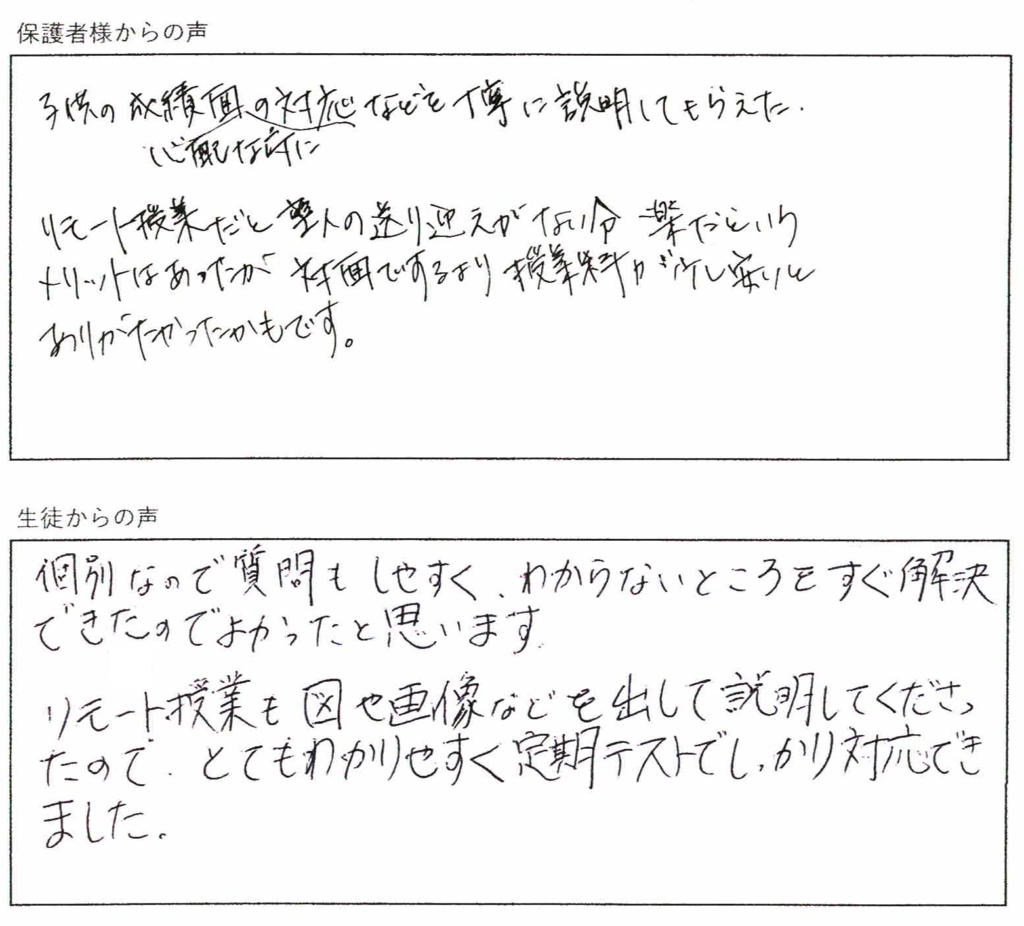 保護者様からの声
子供の成績面の対応などを丁寧に説明してもらえた.
心配な時に
リモート授業だと 塾への送り迎えがない分 楽だという
メリットはあったが 対面でするより 授業料が少し安いと
ありがたかったかもです。
生徒からの声
個別なので質問もしやすく、わからないところをすぐ解決
できたのでよかったと思います.
リモート授業も図や画像などを出して説明してくださっ
たので、とてもわかりやすく定期テストでしっかり対応でき
ました.